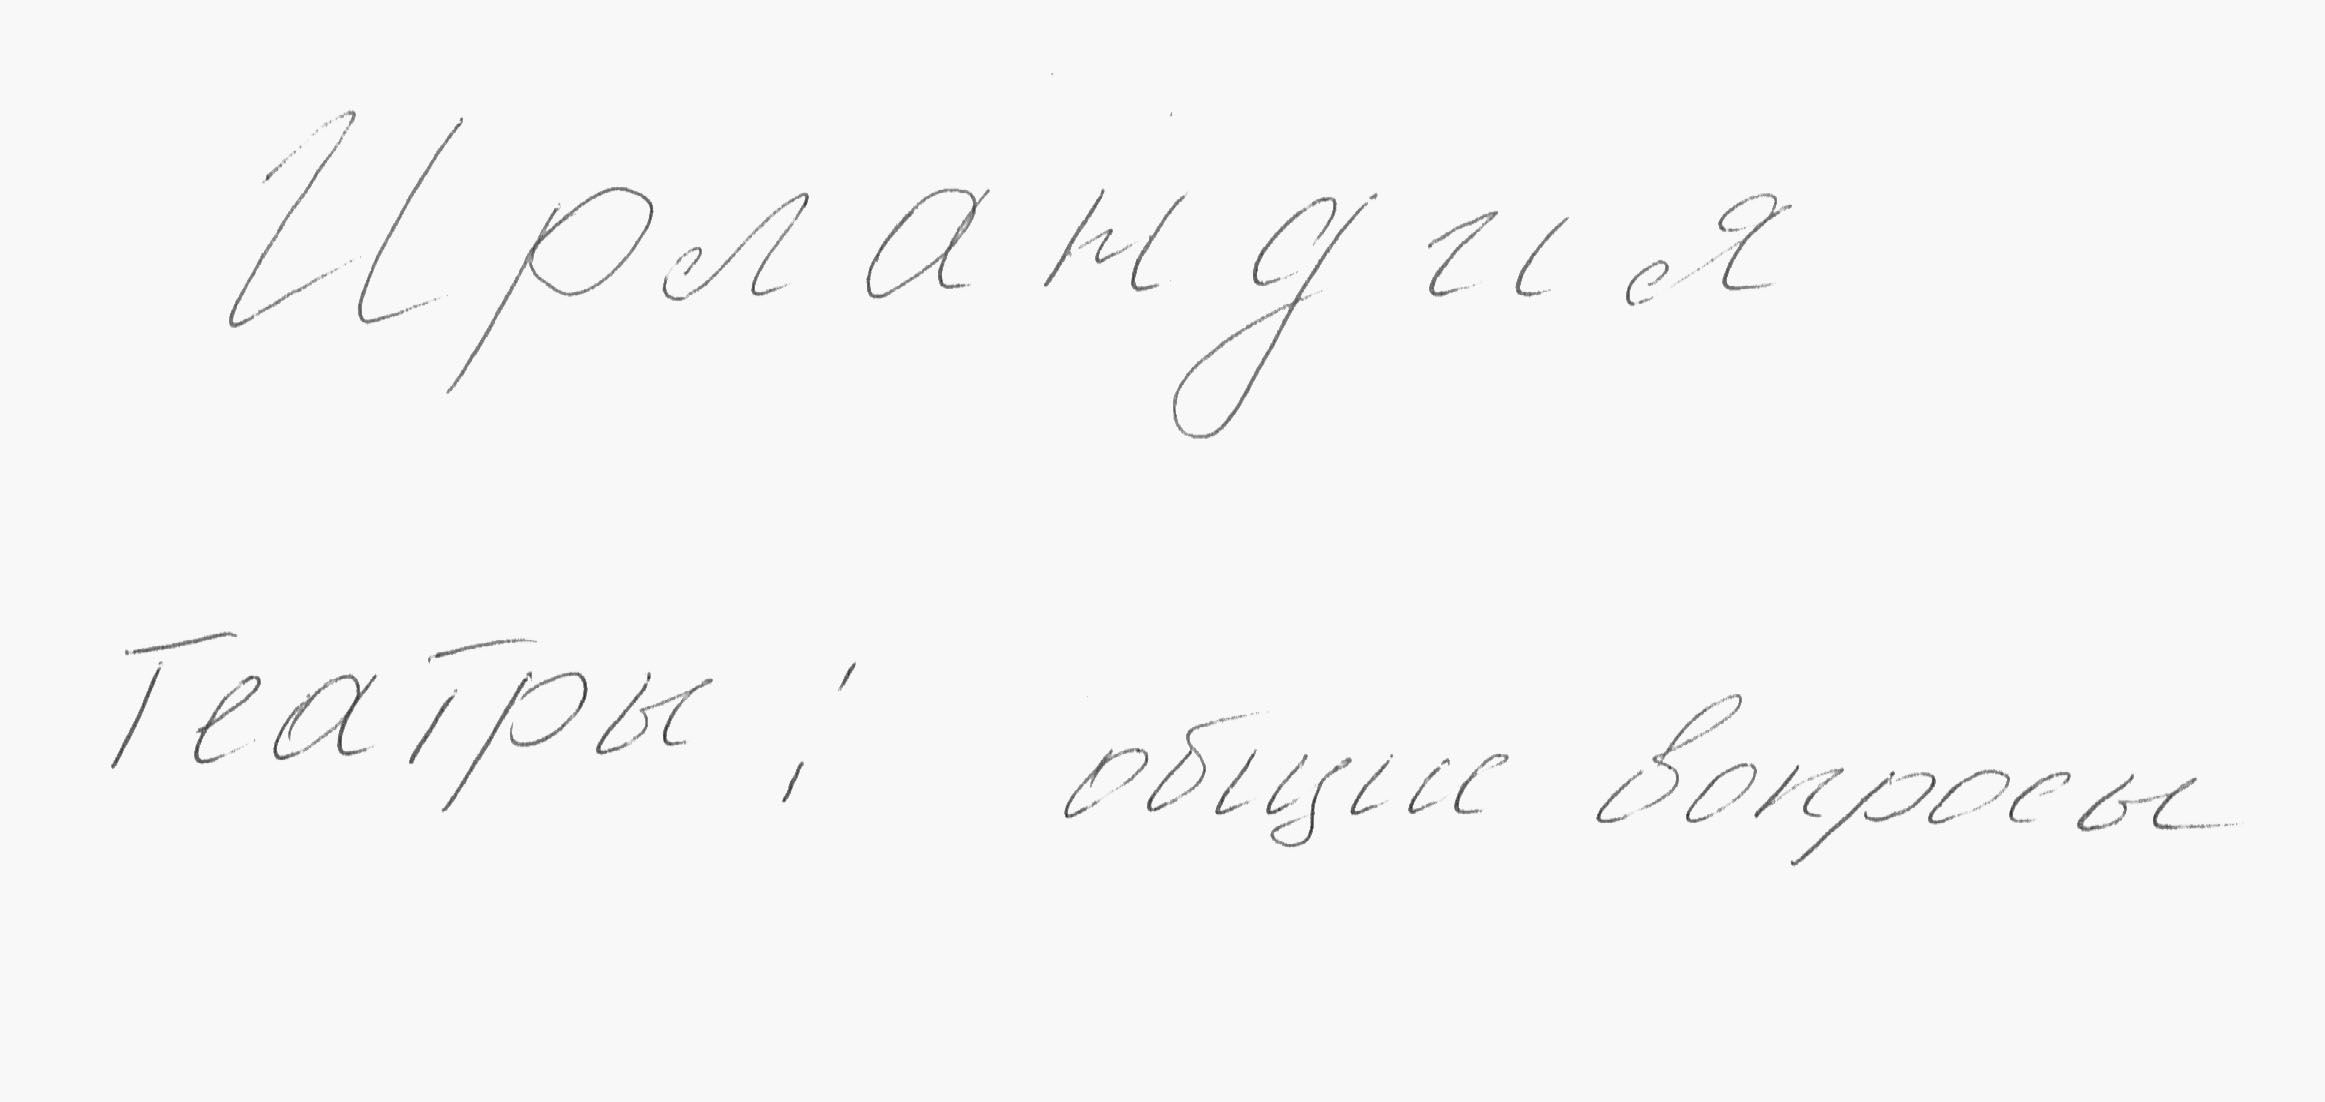 Ирландия
Театры: общие вопросы